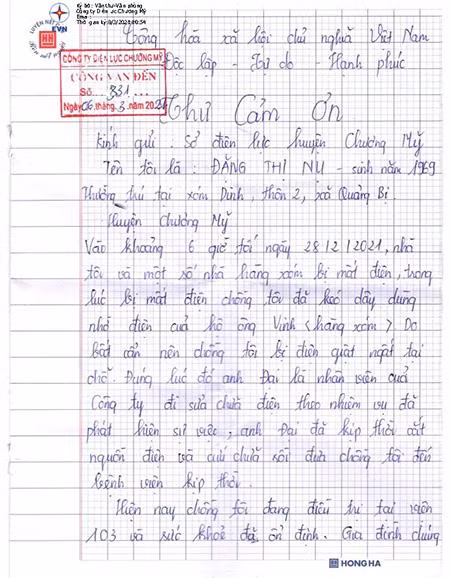 Ký bởi: Văn thư Văn phòng
Công ty Điện lực Chương Mỹ
Email:
EVN
CÔNG TY ĐIỆN LỰC CHƯƠNG MỸ
CÔNG VĂN ĐẾN
Số 331
Ngày 06 tháng 3 năm 20
Cộng hòa xã hội chủ nghĩa Việt Nam
Độc lập - Tự do - Hạnh phúc
Thư Cảm Ơn
Kính gửi: Sở điện lực huyện Chương Mỹ
Tên tôi là: ĐẶNG THỊ NỤ - sinh năm 1969
thường trú tại xóm Dinh, thôn 2, xã Quảng Bị.
Huyện Chương Mỹ
Vào khoảng 6 giờ tối ngày 28/2/2021, nhà
tôi và một số nhà hàng xóm bị mất điện, trong
lúc bị mất điện chồng tôi đã kéo dây dùng
nhờ điện cuả hộ ông Vinh (hàng xóm). Do
bất cẩn nên chồng tôi bị điện giật ngất tại
chỗ. Đúng lúc đó anh Đại là nhân viên cuả
Công ty đi sửa chữa điện theo nhiệm vụ đã
phát hiện sự việc, anh Đại đã kịp thời cắt
nguồn điện và cứu chưã rồi đưa chồng tôi đến
bệnh viện kịp thời.
Hiện nay chồng tôi đang điều trị tại viện
103 và sức khoẻ đã ổn định. Gia đình chúng
HONG HA